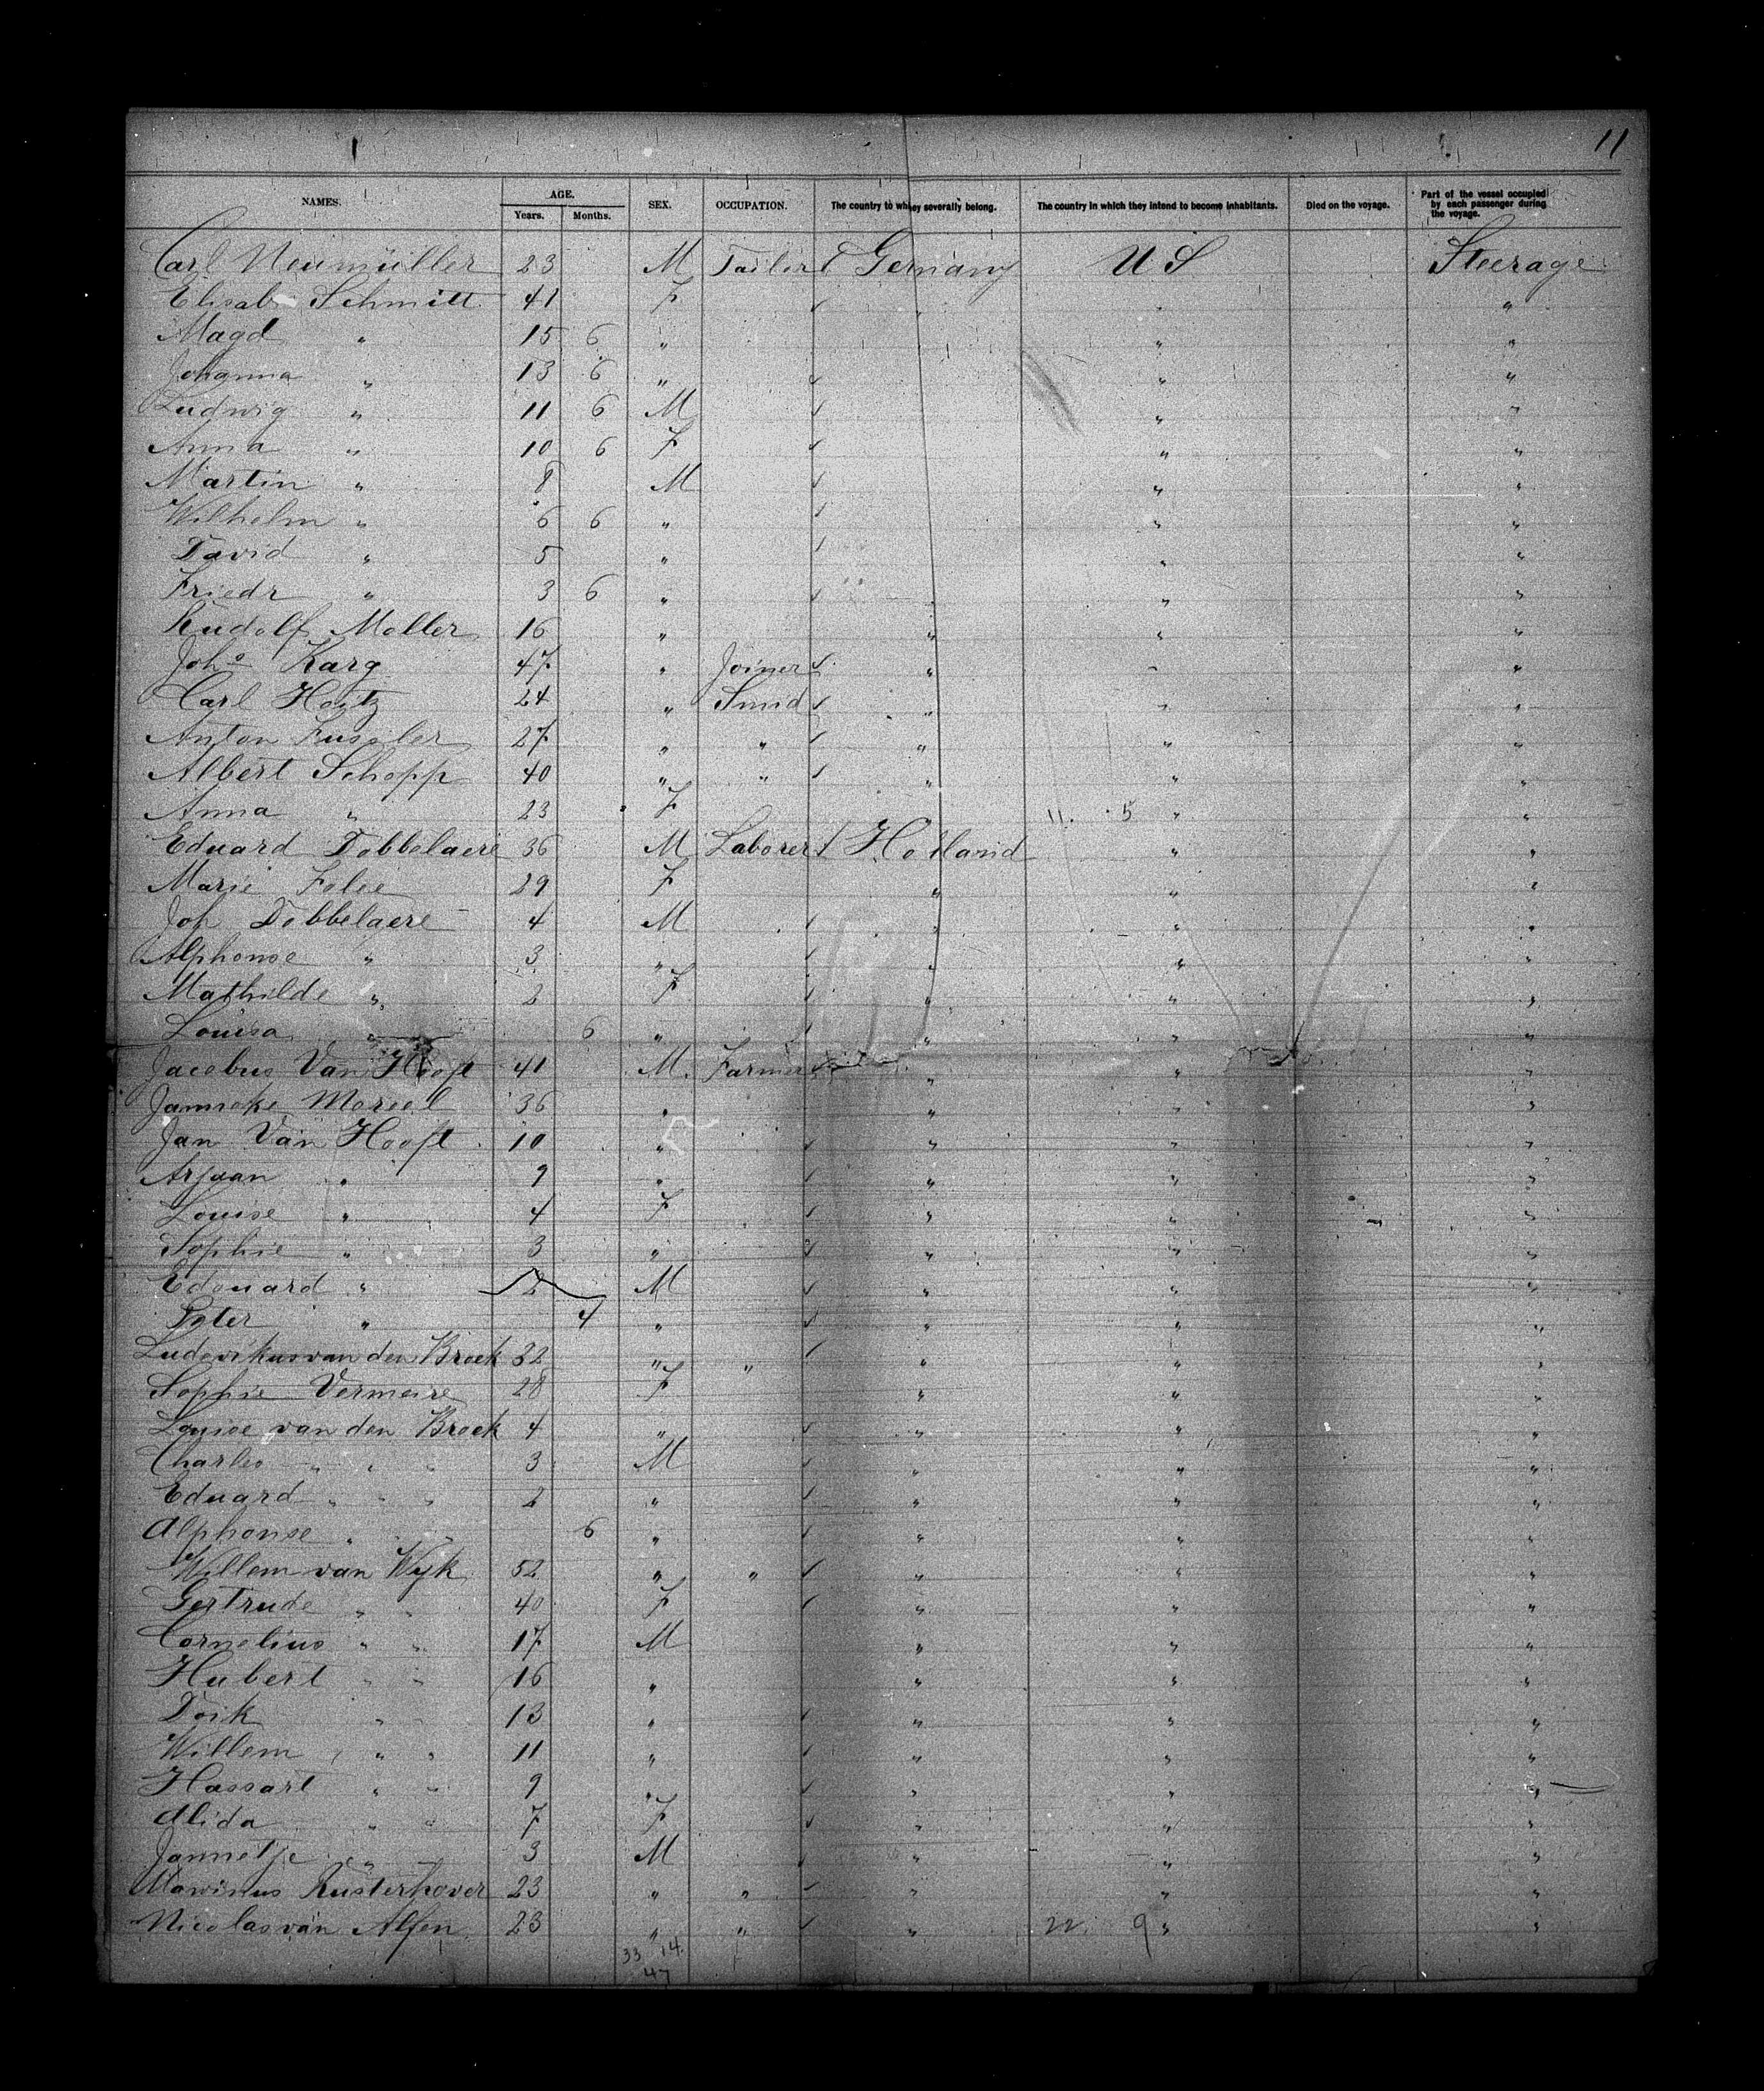 11
NAMES. AGE. Years. Months. SEX. OCCUPATION. The country to whey severally belong. The country in which they intend to become inhabitants. Died on the voyage. Part of the vessel occupied by each passenger during the voyage.
Carl Neumüller 23 M Tailor Germany U S Steerage
Elisab Schmitt 41 F " " "
Magd " 15 6 " " "
Johanna " 13 6 " " "
Ludwig " 11 6 M " "
Anna " 10 6 F " "
Martin " 8 M " "
Wilhelm " 6 6 " " "
David " 5 " " "
Friedr " 3 6 " " " "
Rudolf Moller 16 " " " "
Joh Karg 47 " Joiner " " "
Carl Hoitz 24 " Smid " " "
Anton Fussler 27 " " " " "
Albert Schopp 40 " " " " "
Anna " 23 F 11. 5 " "
Eduard Dobbelaere 36 M Laborer Holland " "
Marie Folie 29 F " " "
Joh Dobbelaere 4 M " " "
Alphonse " 3 " " " "
Mathilde " 2 F " " "
Louisa " 6 " " " "
Jacobus Van Hooft 41 M Farmer " " "
Janneke Moreel 36 " " " "
Jan Van Hooft 10 " " " "
Arjaan " 9 " " " "
Louise " 4 F " " "
Sophie " 3 " " " "
Edouard " 2 M " " "
Peter " 4 " " " "
Ludovikus van den Broek 32 " " " " "
Sophie Vermeire 28 F " " "
Louise van den Broek 4 " " " "
Charles " " " 3 M " " "
Eduard " " " 2 " " " "
Alphonse " " " 6 " " " "
Willem van Wyk 52 " " " " "
Gertrude " " 40 F " " "
Cornelius " " 17 M " " "
Hubert " " 16 " " " "
Doik " " 13 " " " "
Willem " " 11 " " " "
Hassart " " 9 " " " "
Alida " " 7 F " " "
Jannetje " " 3 M " " "
Marinus Kusterhover 23 " " " " "
Nicolas van Alfen 23 " " " 22 9 " "
33 14.
47